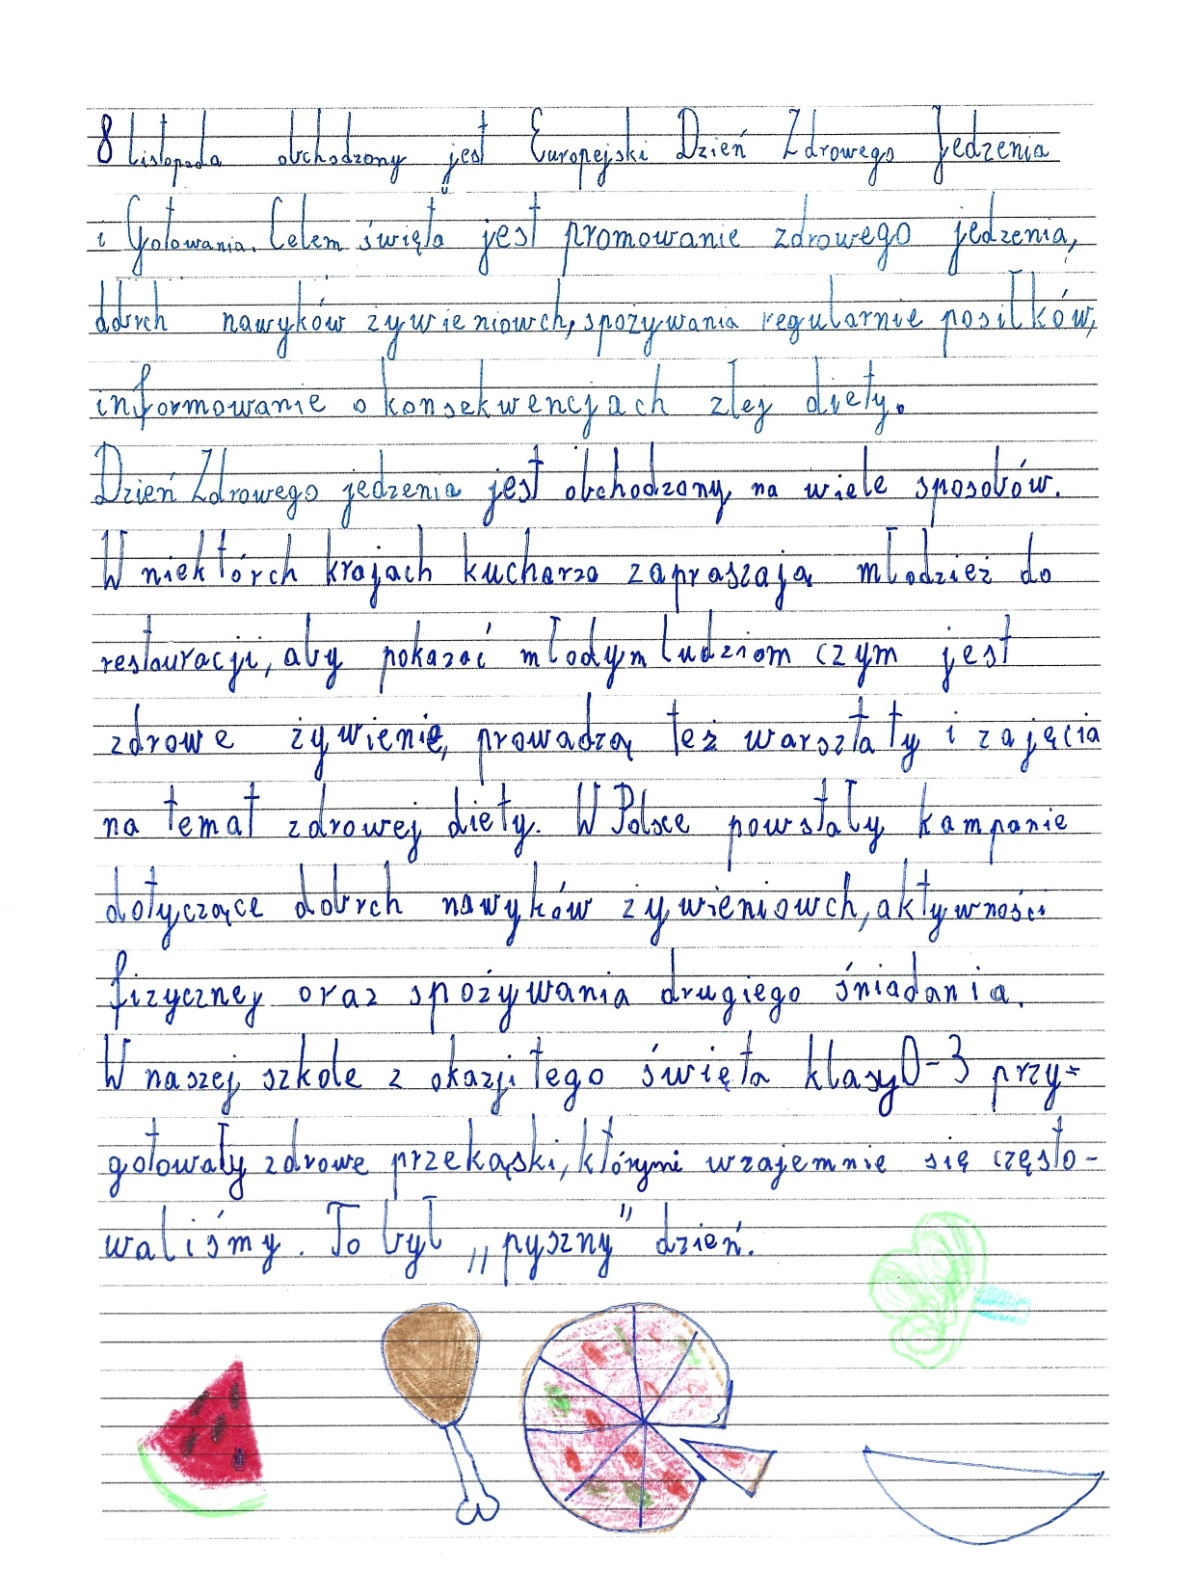 8 Listopada obchodzony jest Europejski Dzień Zdrowego Jedzenia
i Gotowania. Celem święta jest promowanie zdrowego jedzenia,
dobrch nawyków żywieniowch, spożywania regularnie posiłków,
informowanie o konsekwencjach złej diety.
Dzień Zdrowego jedzenia jest obchodzony na wiele sposobów.
W niektórch krajach kucharzo zapraszają młodzież do
restauracji, aby pokazać młodym ludziom czym jest
zdrowe żywienie, prowadzą też warsztaty i zajęcia
na temat zdrowej diety. W Polsce powstały kampanie
dotyczące dobrch nawyków żywieniowch, aktywności
fizycznej oraz spożywania drugiego śniadania.
W naszej szkole z okazji tego święta klasy 0-3 przy=
gotowały zdrowe przekąski, którymi wzajemnie się często-
waliśmy. To był „pyszny” dzień.